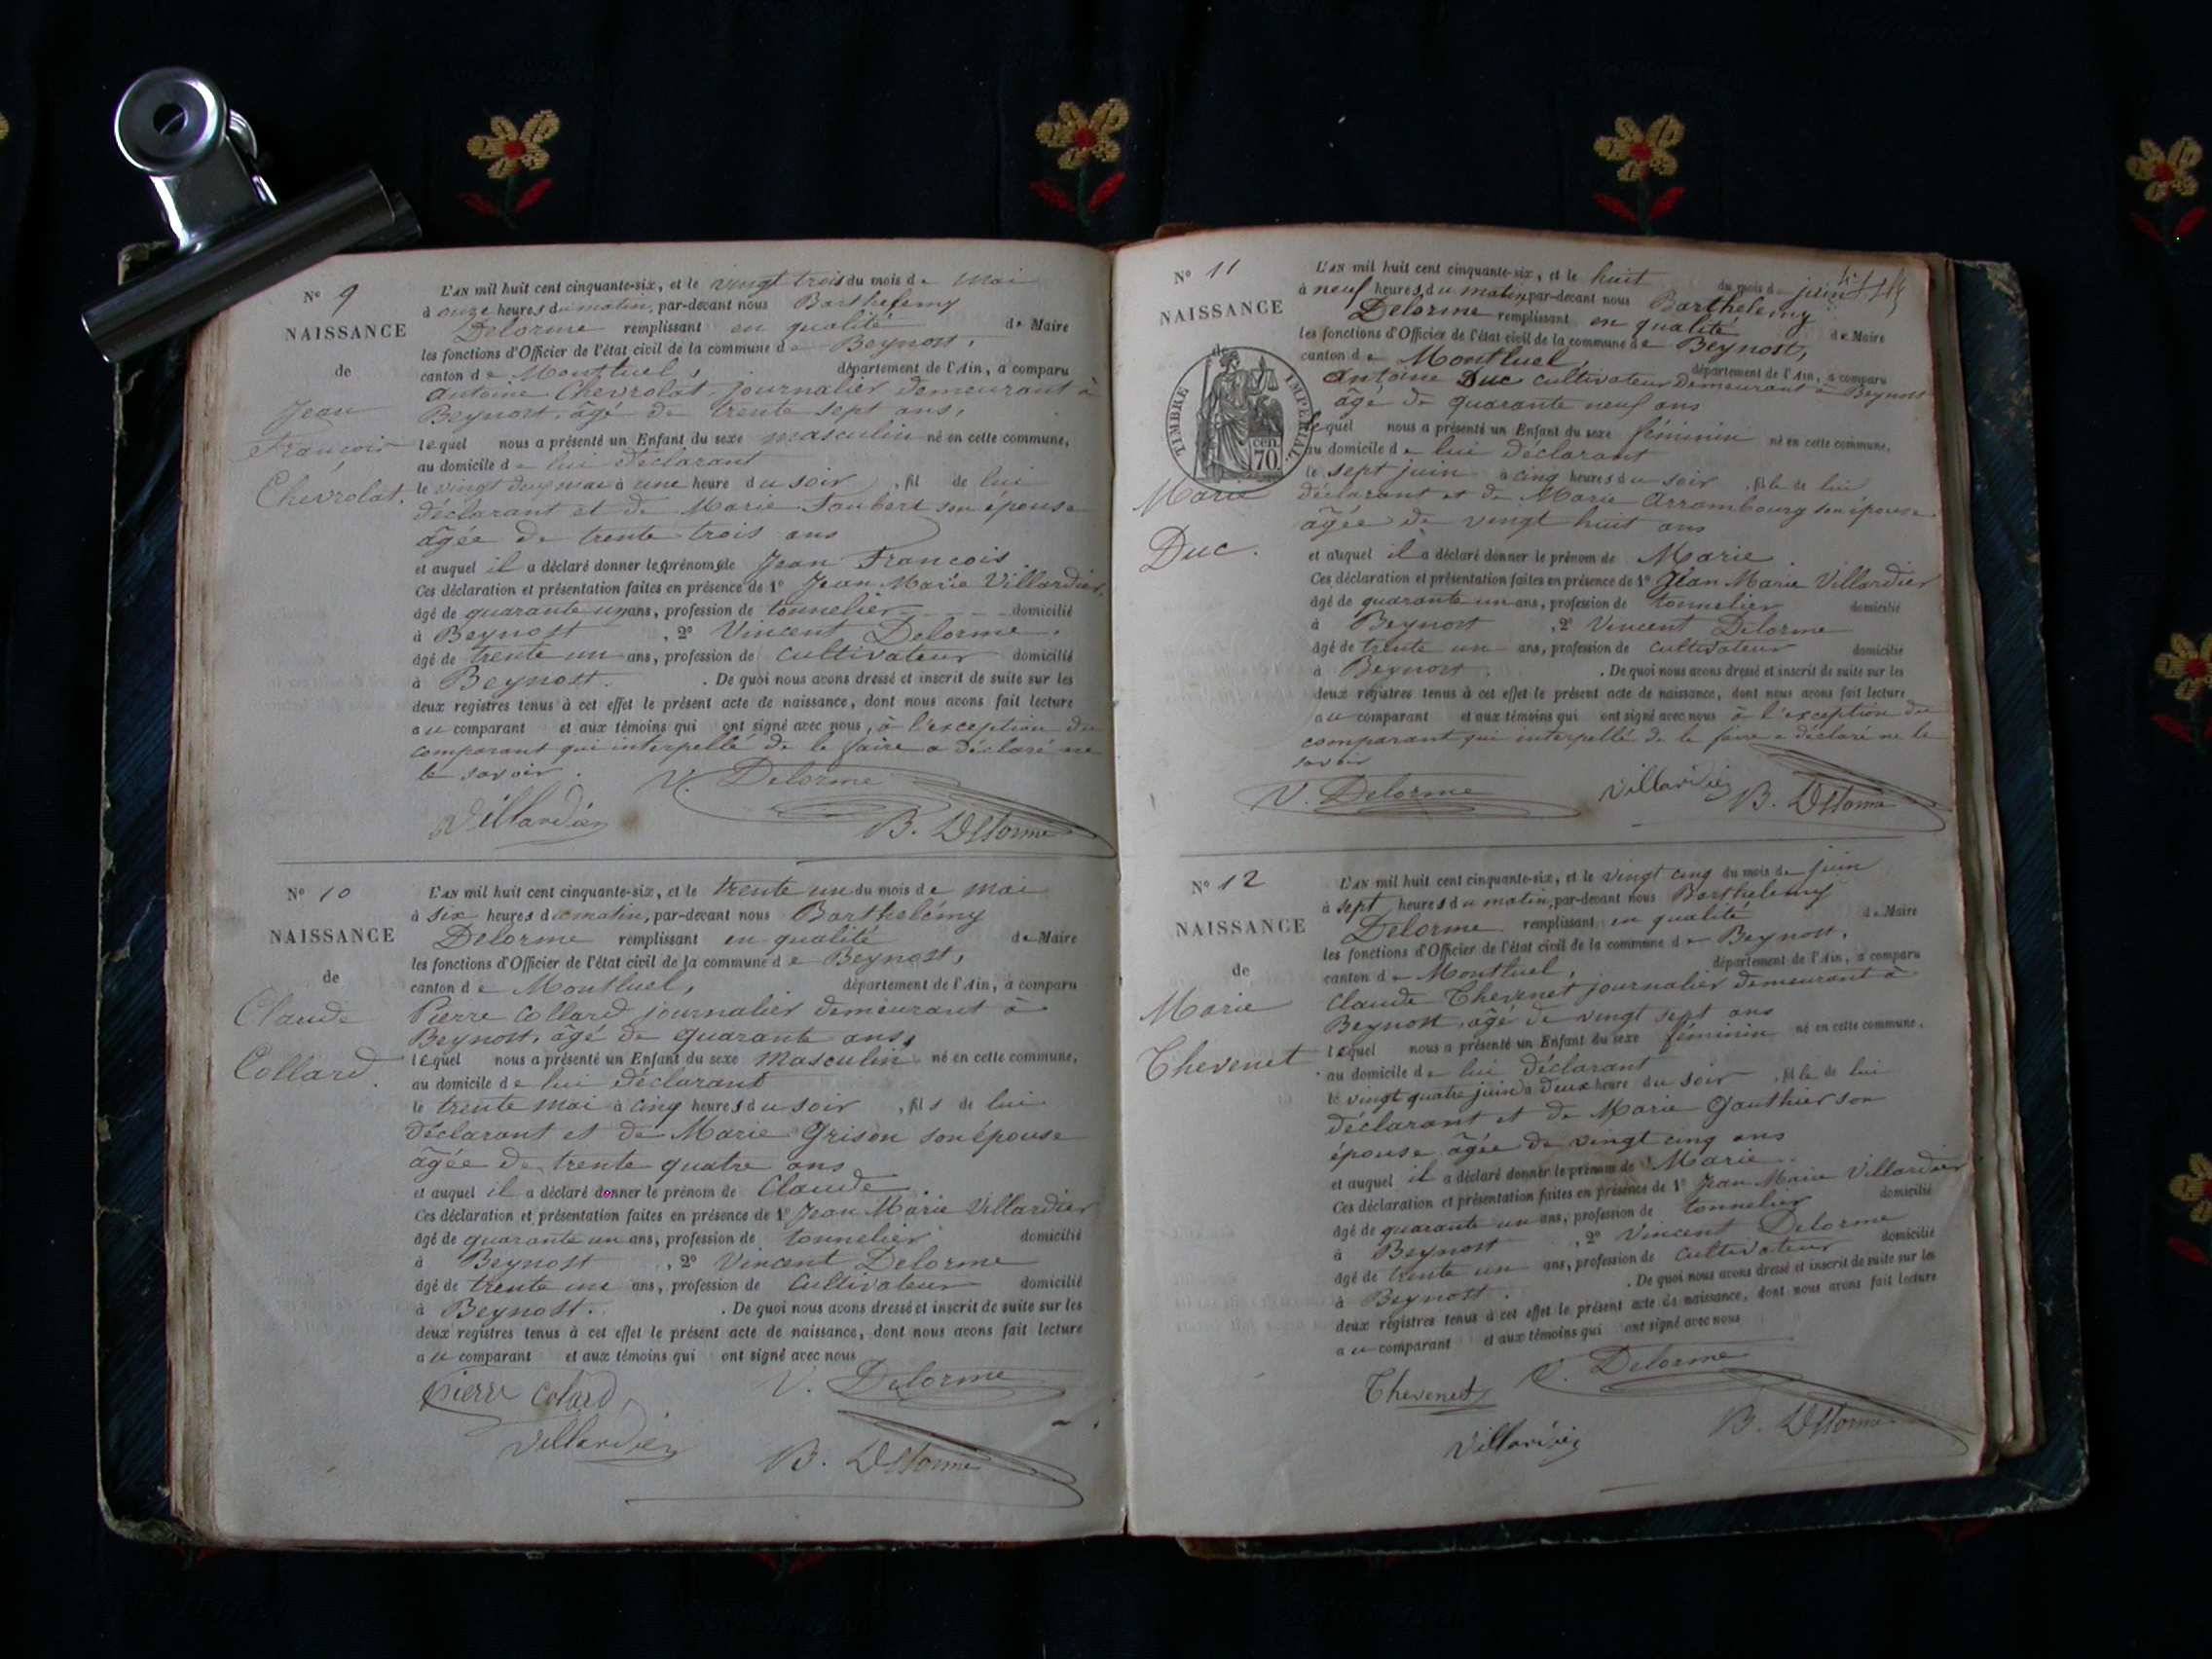 N° 9
NAISSANCE
de
Jean
François
Chevrolat.
L'AN mil huit cent cinquante-six, et le vingt trois du mois de Mai
à onze heures du matin, par-devant nous Barthelemy
Delorme remplissant en qualité de Maire
les fonctions d'Officier de l'état civil de la commune de Beynost,
canton de Montluel, département de l'Ain, a comparu
Antoine Chevrolat journalier demeurant à
Beynost, âgé de trente sept ans,
lequel nous a présenté un Enfant du sexe masculin né en cette commune,
au domicile de lui déclarant
le vingt deux mai à une heure du soir, fil de lui
déclarant et de Marie Joubert son épouse
âgée de trente trois ans
et auquel il a déclaré donner les prénoms de Jean François.
Ces déclaration et présentation faites en présence de 1° Jean Marie Villardier,
âgé de quarante un ans, profession de tonnelier domicilié
à Beynost, 2° Vincent Delorme,
âgé de trente un ans, profession de cultivateur domicilié
à Beynost. . De quoi nous avons dressé et inscrit de suite sur les
deux registres tenus à cet effet le présent acte de naissance, dont nous avons fait lecture
au comparant et aux témoins qui ont signé avec nous, à l'exception du
comparant qui interpellé de le faire a déclaré ne
le savoir.
V. Delorme
Villardier
B. Delorme
N° 10
NAISSANCE
de
Claude
Collard.
L'AN mil huit cent cinquante-six, et le trente un du mois de mai
à six heures du matin, par-devant nous Barthelémy
Delorme remplissant en qualité de Maire
les fonctions d'Officier de l'état civil de la commune de Beynost,
canton de Montluel, département de l'Ain, a comparu
Pierre Collard journalier demeurant à
Beynost, âgé de quarante ans,
lequel nous a présenté un Enfant du sexe Masculin né en cette commune,
au domicile de lui déclarant
le trente mai à cinq heures du soir, fils de lui
déclarant et de Marie Grison son épouse
âgée de trente quatre ans
et auquel il a déclaré donner le prénom de Claude.
Ces déclaration et présentation faites en présence de 1° Jean Marie Villardier
âgé de quarante un ans, profession de tonnelier domicilié
à Beynost, 2° Vincent Delorme
âgé de trente un ans, profession de cultivateur domicilié
à Beynost. . De quoi nous avons dressé et inscrit de suite sur les
deux registres tenus à cet effet le présent acte de naissance, dont nous avons fait lecture
au comparant et aux témoins qui ont signé avec nous
Pierre Colard
V. Delorme
Villardier
B. Delorme
N° 11
NAISSANCE
de
TIMBRE IMPÉRIAL
70 cen.
Marie
Duc.
L'AN mil huit cent cinquante-six, et le huit du mois de juin
à neuf heures du matin, par-devant nous Barthelemy
Delorme remplissant en qualité de Maire
les fonctions d'Officier de l'état civil de la commune de Beynost,
canton de Montluel, département de l'Ain, a comparu
Antoine Duc cultivateur demeurant à Beynost
âgé de quarante neuf ans
lequel nous a présenté un Enfant du sexe féminin né en cette commune,
au domicile de lui déclarant
le sept juin à cinq heures du soir, fille de lui
déclarant et de Marie Arrambourg son épouse
âgée de vingt huit ans
et auquel il a déclaré donner le prénom de Marie.
Ces déclaration et présentation faites en présence de 1° Jean Marie Villardier
âgé de quarante un ans, profession de tonnelier domicilié
à Beynost, 2° Vincent Delorme
âgé de trente un ans, profession de cultivateur domicilié
à Beynost. . De quoi nous avons dressé et inscrit de suite sur les
deux registres tenus à cet effet le présent acte de naissance, dont nous avons fait lecture
au comparant et aux témoins qui ont signé avec nous à l'exception du
comparant qui interpellé de le faire a déclaré ne le
savoir
V. Delorme
Villardier
B. Delorme
N° 12
NAISSANCE
de
Marie
Thevenet.
L'AN mil huit cent cinquante-six, et le vingt cinq du mois de juin
à sept heures du matin, par-devant nous Barthelemy
Delorme remplissant en qualité de Maire
les fonctions d'Officier de l'état civil de la commune de Beynost,
canton de Montluel, département de l'Ain, a comparu
Claude Thevenet journalier demeurant à
Beynost, âgé de vingt sept ans
lequel nous a présenté un Enfant du sexe féminin né en cette commune,
au domicile de lui déclarant
le vingt quatre juin à deux heure du soir, fille de lui
déclarant et de Marie Gauthier son
épouse âgée de vingt cinq ans
et auquel il a déclaré donner le prénom de Marie.
Ces déclaration et présentation faites en présence de 1° Jean Marie Villardier
âgé de quarante un ans, profession de tonnelier domicilié
à Beynost, 2° Vincent Delorme
âgé de trente un ans, profession de cultivateur domicilié
à Beynost. . De quoi nous avons dressé et inscrit de suite sur les
deux registres tenus à cet effet le présent acte de naissance, dont nous avons fait lecture
au comparant et aux témoins qui ont signé avec nous
Thevenet
V. Delorme
Villardier
B. Delorme